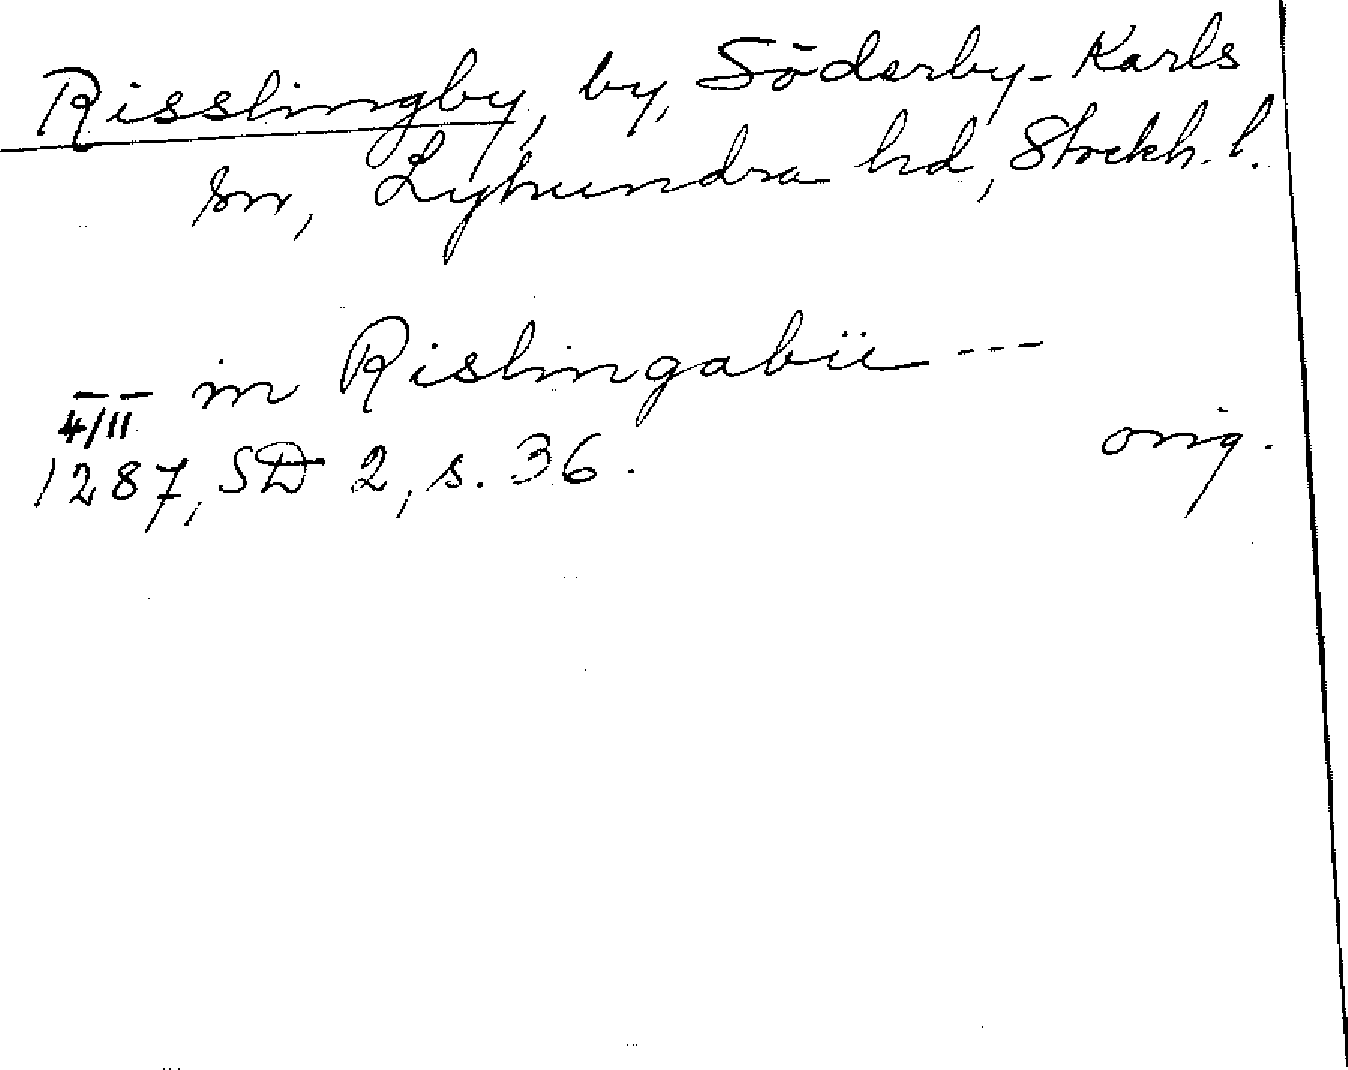 Risslingby, by, Söderby-Karls
sn, Lyhundra hd, Stockh. l.
-- in Rislingabü ---
4/II
1287, SD 2, s. 36. orig.